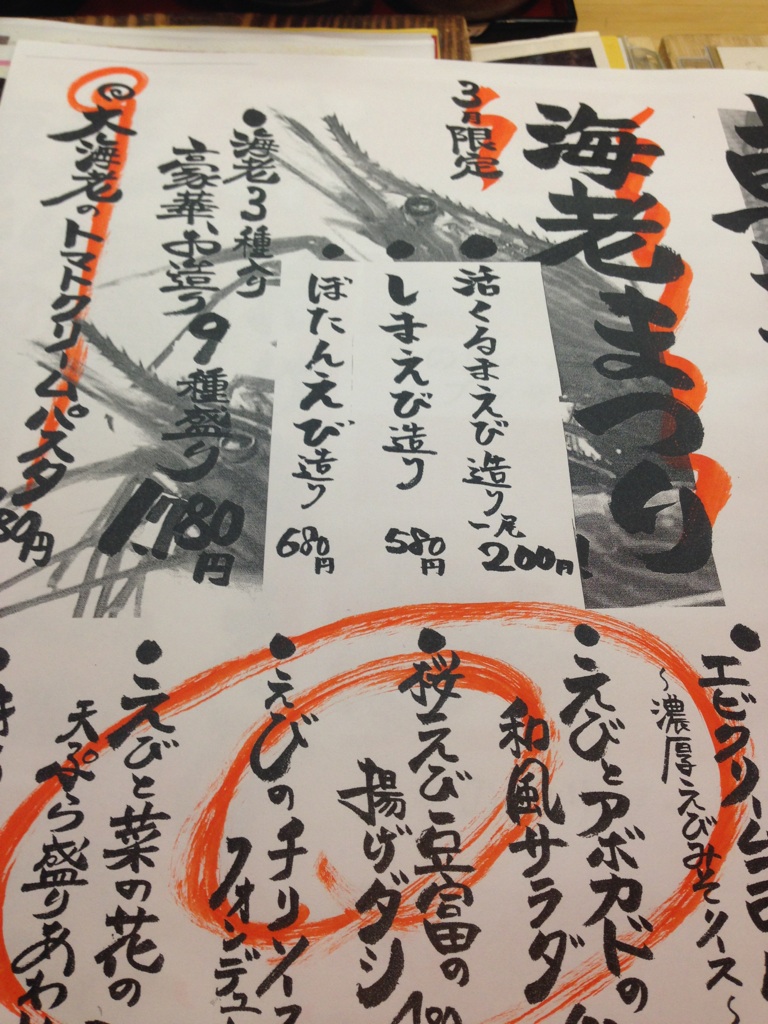 海老まつり
3月限定
・活くるまえび造り一尾200円
・しまえび造り 580円
・ぼたんえび造り 680円
・海老3種入り
豪華、お造り9種盛り
1.780円
大海老のトマトクリームパスタ
80円
エビクリーム
～濃厚えびみそソース～
・えびとアボカドの
和風サラダ
・桜えび豆富の
揚げダシ
・えびのチリソース
フォンデュ
・えびと菜の花の
天ぷら盛りあわ